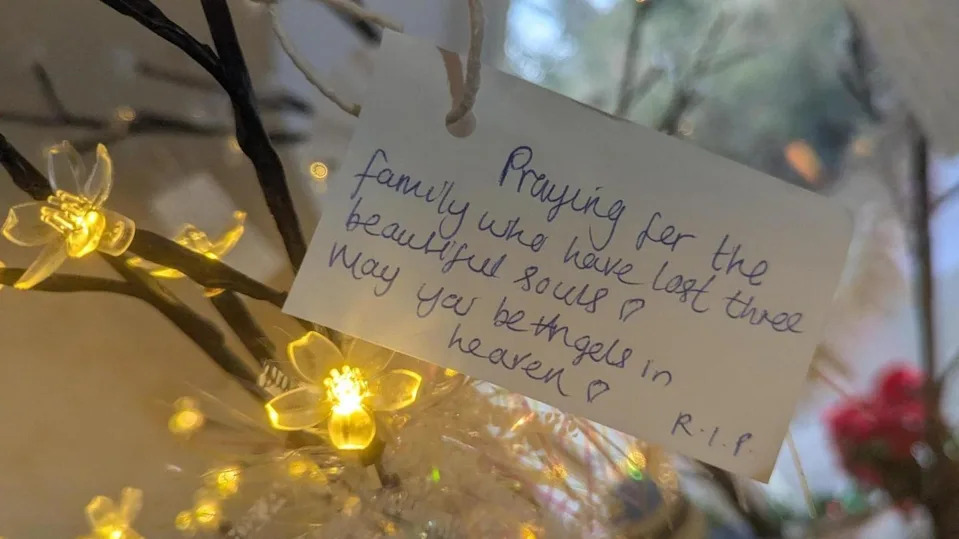 Praying for the
family who have lost three
beautiful souls ♡
May you be Angels in
heaven ♡
R.I.P.